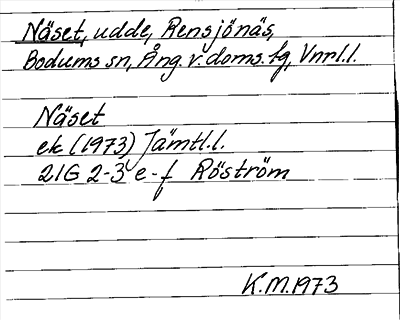 Näset, udde, Rensjönäs,
Bodums sn, Ång. v. doms. tg, Vnrl.l.
Näset
ek (1973) Jämtl.l.
21G 2-3 e-f Röström
K.M.1973